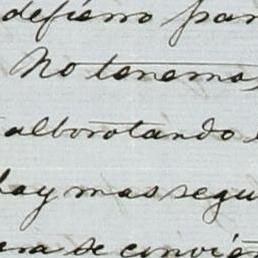 defierro par
No tenemos
alborotando
hay mas segu
ra se convien